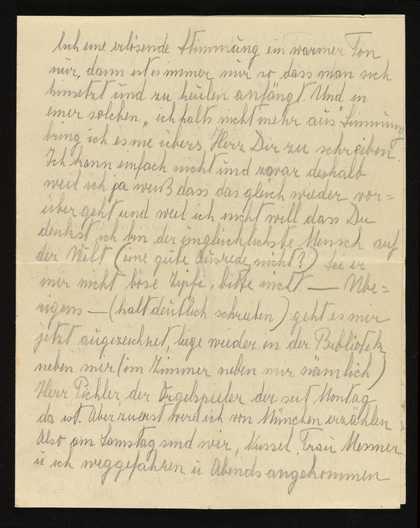 lich eine erlösende Stimmung ein warmer Ton
nur, dann ist es immer nur so dass man sich
hinsetzt und zu heulen anfängt Und in
einer solchen „ich halts nicht mehr aus" Stimmung
bring ich es nie übers Herz Dir zu schreiben.
Ich kann einfach nicht und zwar deshalb
weil ich ja weiß dass das gleich wieder vor=
über geht und weil ich nicht will dass Du
denkst ich bin der unglücklichste Mensch auf
der Welt (eine gute Ausrede nicht?) Sei
mir nicht böse Zipfi, bitte nicht — Übri=
gens — (halt deutlich schreiben) geht es mir
jetzt ausgezeichnet, liege wieder in der Bibliothek
neben mir (im Zimmer neben mir nämlich)
Herr Pichler, der Orgelspieler der seit Montag
da ist. Aber zuerst werd ich von München erzählen
Also am Samstag sind wir, Mussel, Frau Messner
u ich weggefahren u Abends angekommen